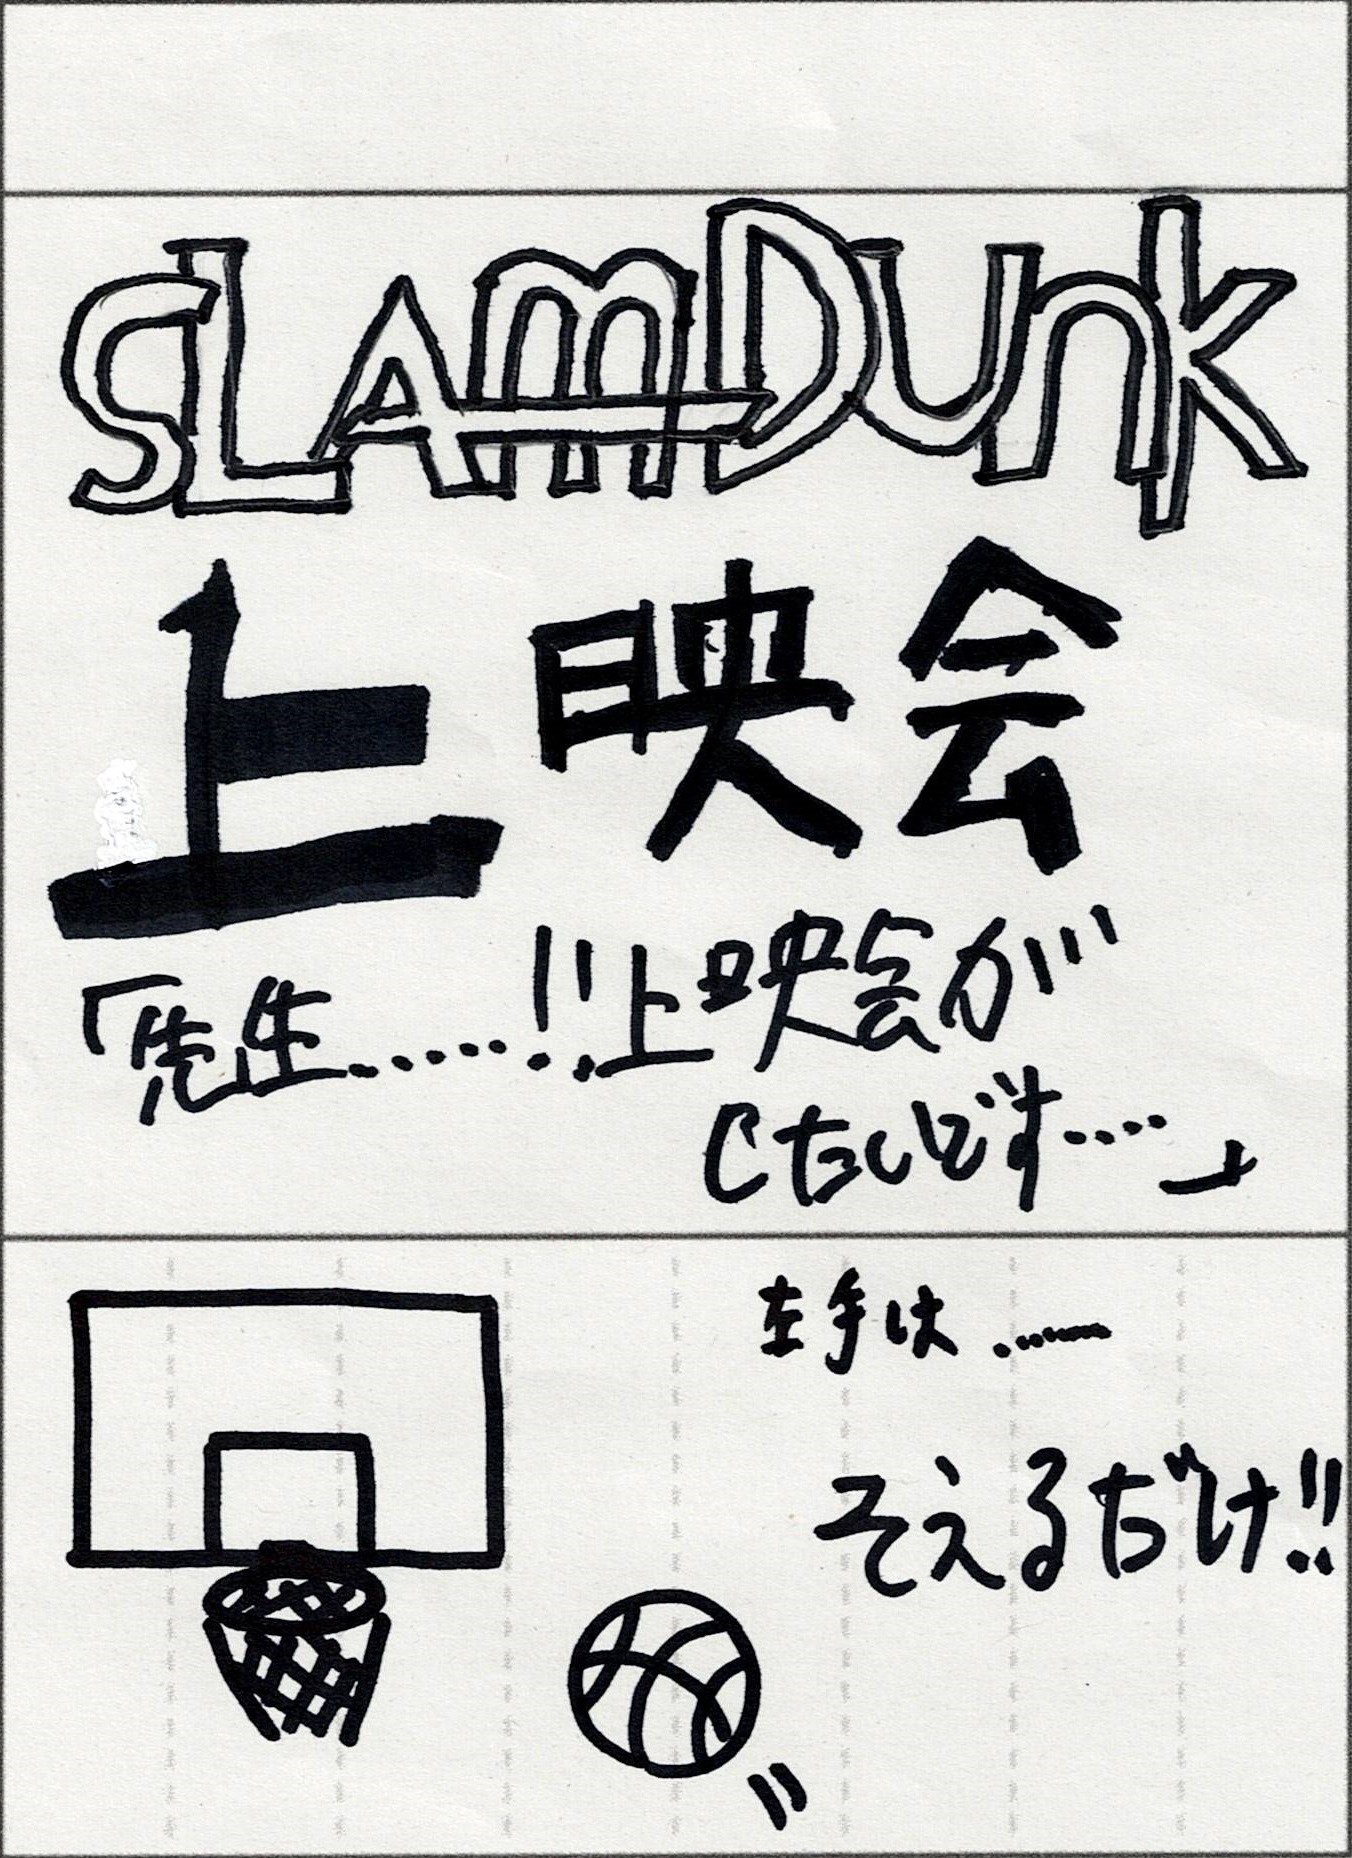 SLAMDUNK
上映会
「先生……!!上映会が
したいです…」
左手は……
そえるだけ!!